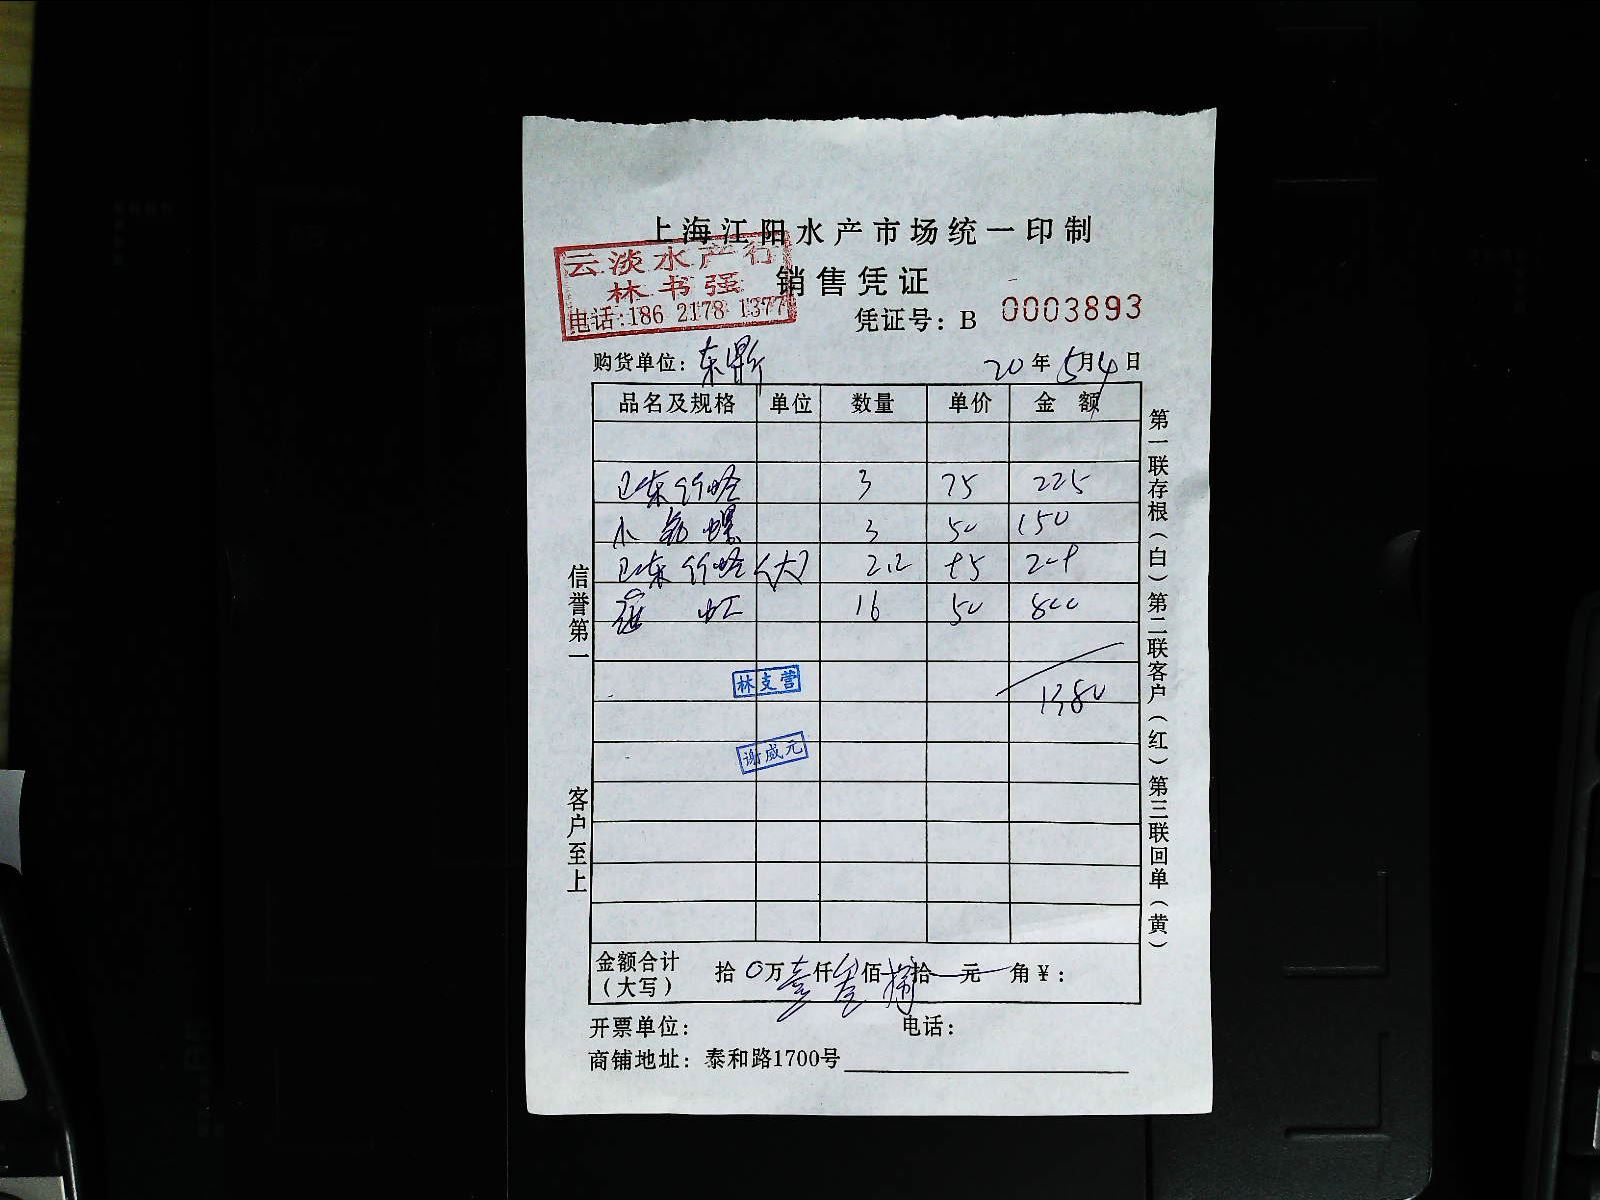 上海江阳水产市场统一印制
云淡水产行
林书强
电话:186 2178 1377
销售凭证
凭证号: B 0003893
购货单位: 东 20年5月4日
品名及规格 单位 数量 单价 金额
巴东竹蛏 3 75 225
小 螺 3 50 150
巴东竹蛏(大) 2.2
虹 16 50 800
林支营
1380
谢威元
金额合计(大写) 拾0万壹仟叁佰捌拾元角¥:
开票单位: 电话:
商铺地址: 泰和路1700号
信誉第一 客户至上
第一联存根(白)第二联客户(红)第三联回单(黄)